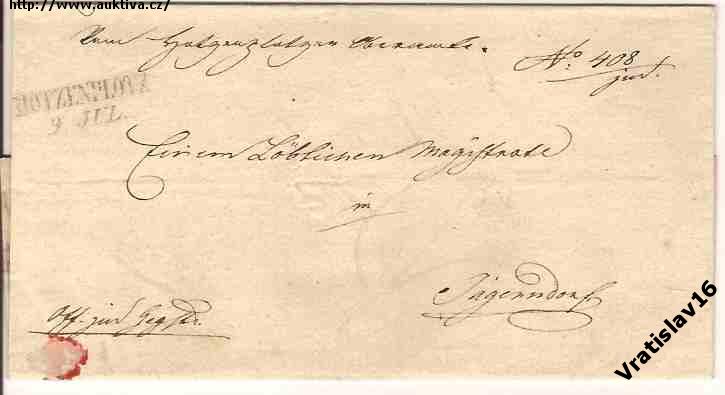 http://www.auktiva.cz/
Vom Hotzenplotzer Oberamte.
No: 408
jud.
HOTZENPLOTZ
9 JUL.
Einem Löblichen Magistrate
in
Jägerndorf
Off. jud
Vratislav16